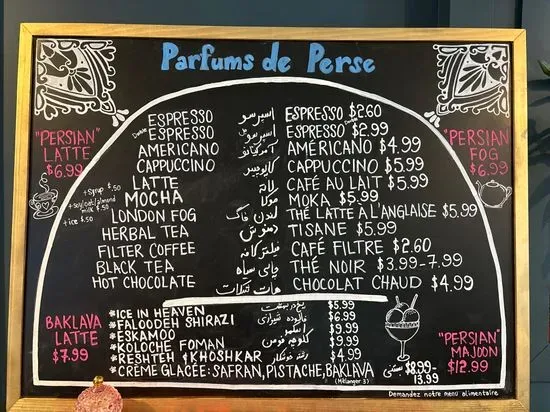 Parfums de Perse
"PERSIAN"
LATTE
$6.99
+ syrup $.50
+ soy/oat/almond
milk $.50
+ ice $.50
BAKLAVA
LATTE
$7.99
ESPRESSO اسپرسو ESPRESSO $2.60
Double ESPRESSO اسپرسو ESPRESSO Double $2.99
AMERICANO آمریکانو AMÉRICANO $4.99
CAPPUCCINO کاپوچینو CAPPUCCINO $5.99
LATTE لاته CAFÉ AU LAIT $5.99
MOCHA موکا MOKA $5.99
LONDON FOG لندن فاگ THÉ LATTE À L'ANGLAISE $5.99
HERBAL TEA دمنوش TISANE $5.99
FILTER COFFEE فیلتر کافه CAFÉ FILTRE $2.60
BLACK TEA چای سیاه THÉ NOIR $3.99-7.99
HOT CHOCOLATE هات چاکلت CHOCOLAT CHAUD $4.99
*ICE IN HEAVEN یخ در بهشت $5.99
*FALOODEH SHIRAZI فالوده شیرازی $6.99
*ESKAMOO اسکیمو $9.99
*KOLOCHE FOMAN کلوچه فومن $9.99
*RESHTEH & KHOSHKAR رشته خوشکار $4.99
*CRÈME GLACÉE: SAFRAN, PISTACHE, BAKLAVA بستنی $8.99-
13.99
(Mélanger 3)
"PERSIAN
FOG
$6.99
"PERSIAN"
MAJOON
$12.99
Demandez notre menu alimentaire